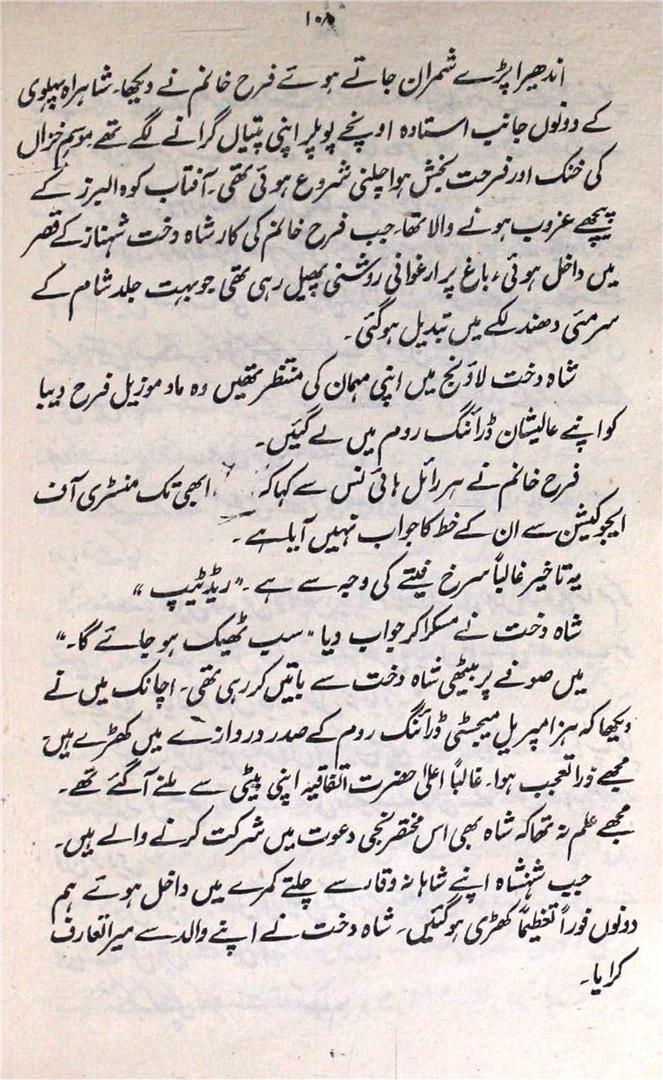 ۱۰۸
اندھیرا پڑے شمران جاتے ہوئے فرح خانم نے دیکھا۔ شاہراہ پہلوی
کے دونوں جانب استادہ اونچے پوپلر اپنی پتیاں گرانے لگے تھے موسمِ خزاں
کی خنک اور فرحت بخش ہوا چلنی شروع ہوئی تھی۔ آفتاب کوہ البرز کے
پیچھے غروب ہونے والا تھا۔ جب فرح خانم کی کار شاہ دخت شہناز کے قصر
میں داخل ہوئی، باغ پر ارغوانی روشنی پھیل رہی تھی جو بہت جلد شام کے
سرمئی دھندلکے میں تبدیل ہو گئی۔
شاہ دخت لاؤنج میں اپنی مہمان کی منتظر تھیں وہ مادموزیل فرح دیبا
کو اپنے عالیشان ڈرائنگ روم میں لے گئیں۔
فرح خانم نے ہر رائل ہائی نس سے کہا کہ ابھی تک منسٹری آف
ایجوکیشن سے ان کے خط کا جواب نہیں آیا ہے۔
یہ تاخیر غالباً سرخ فیتے کی وجہ سے ہے۔ "ریڈ ٹیپ"
شاہ دخت نے مسکرا کر جواب دیا "سب ٹھیک ہو جائے گا۔"
میں صوفے پر بیٹھی شاہ دخت سے باتیں کر رہی تھی۔ اچانک میں نے
دیکھا کہ ہز امپیریل میجسٹی ڈرائنگ روم کے صدر دروازے میں کھڑے ہیں
مجھے ذرا تعجب ہوا۔ غالباً اعلیٰ حضرت اتفاقیہ اپنی بیٹی سے ملنے آ گئے تھے۔
مجھے علم نہ تھا کہ شاہ بھی اس مختصر نجی دعوت میں شرکت کرنے والے ہیں۔
جب شہنشاہ اپنے شاہانہ وقار سے چلتے کمرے میں داخل ہوئے ہم
دونوں فوراً تعظیماً کھڑی ہو گئیں۔ شاہ دخت نے اپنے والد سے میرا تعارف
کرایا۔